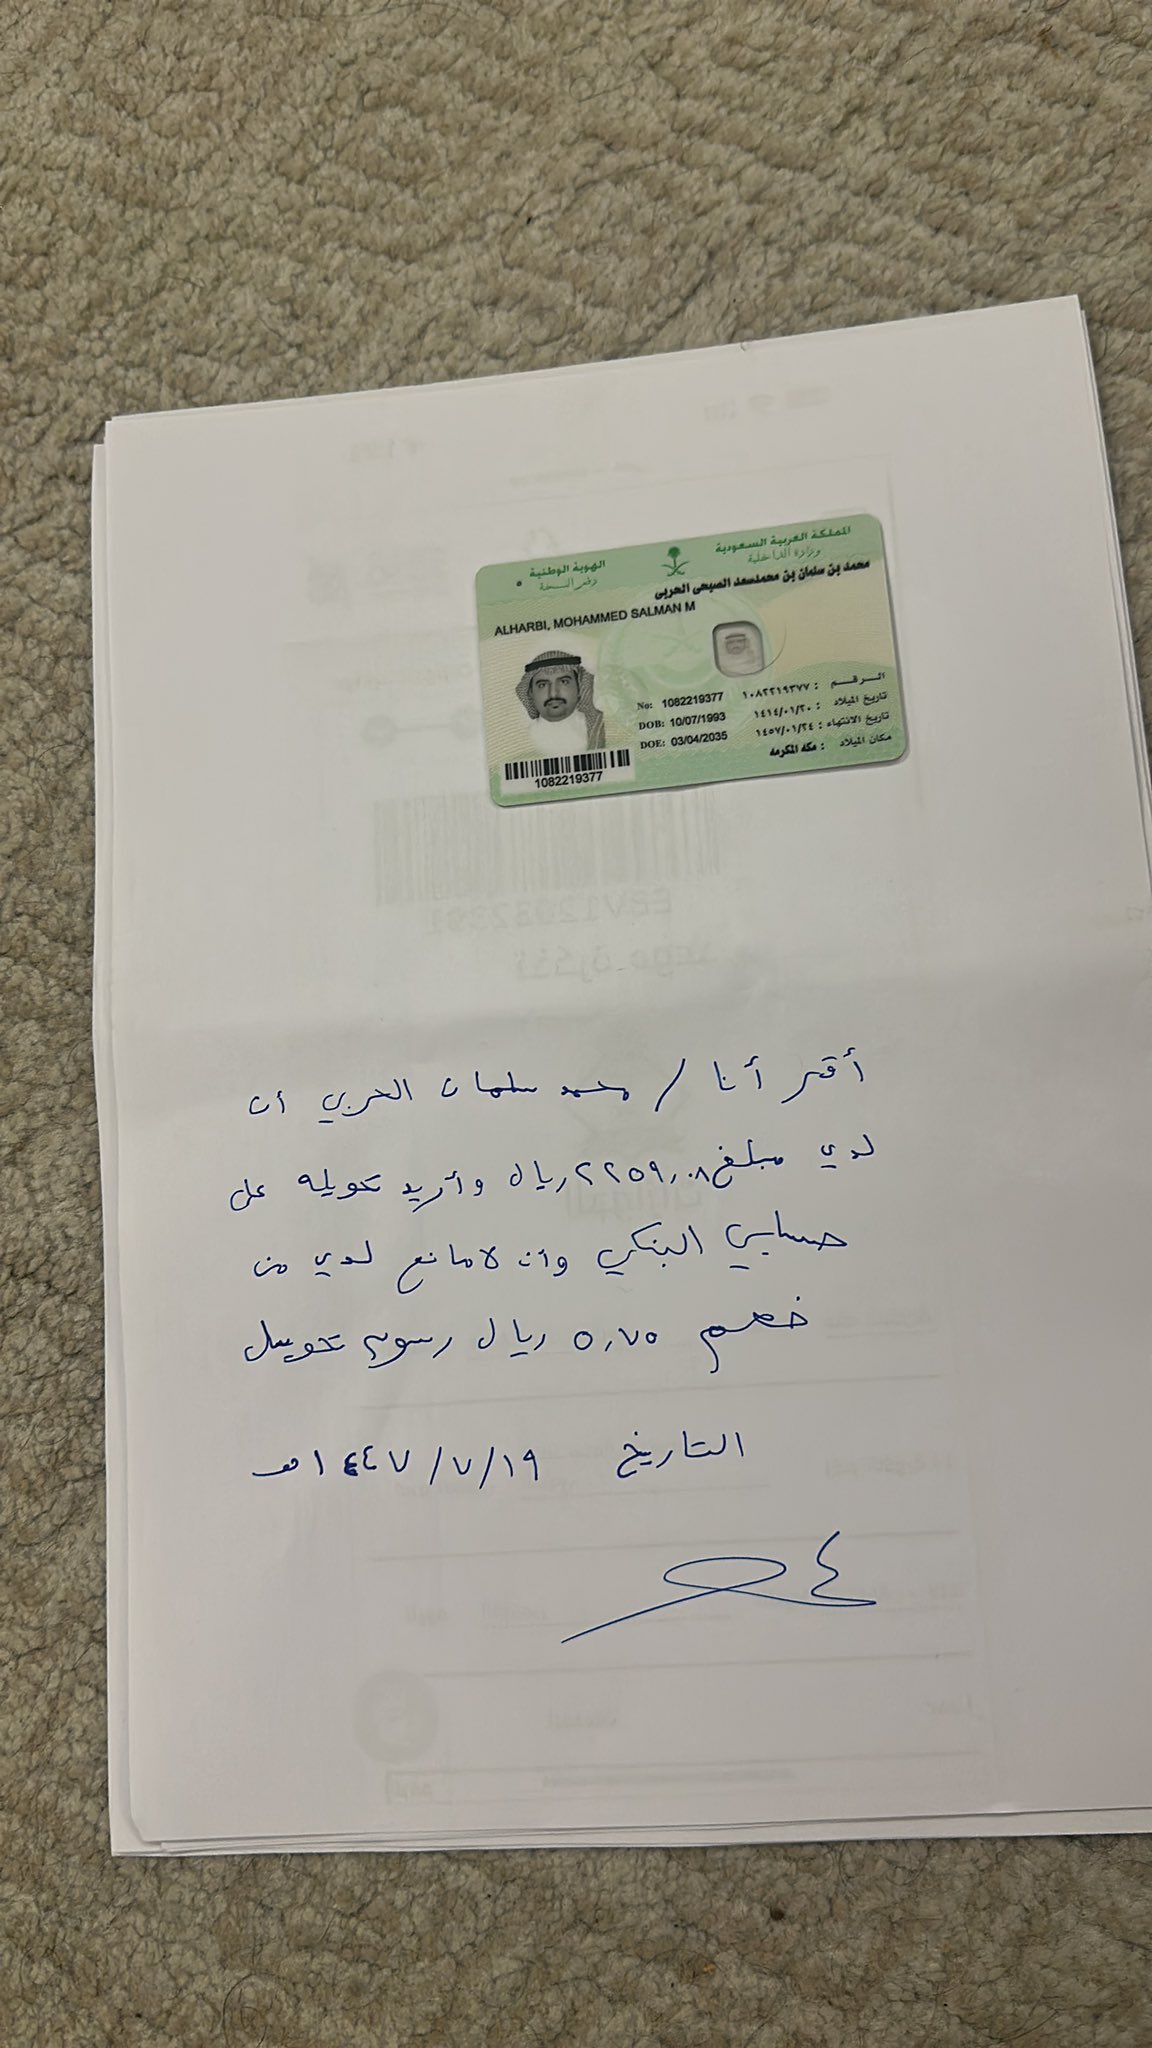 المملكة العربية السعودية
وزارة الداخلية
الهوية الوطنية
محمد بن سلمان بن محمدسعد الصبحي الحربي
ALHARBI, MOHAMMED SALMAN M
الرقم : ١٠٨٢٢١٩٣٧٧
No: 1082219377
تاريخ الميلاد : ١٤١٤/٠١/٢٠
DOB: 10/07/1993
تاريخ الانتهاء : ١٤٥٧/٠١/٢٤
DOE: 03/04/2035
مكان الميلاد : مكه المكرمه
1082219377
أقر أنا / محمد سلمان الحربي أن
لدي مبلغ ٢٢٥٩,٠٨ ريال وأريد تحويله على
حسابي البنكي وان لا مانع لدي من
خصم ٥,٧٥ ريال رسوم تحويل
التاريخ ١٤٤٧/٧/١٩هـ